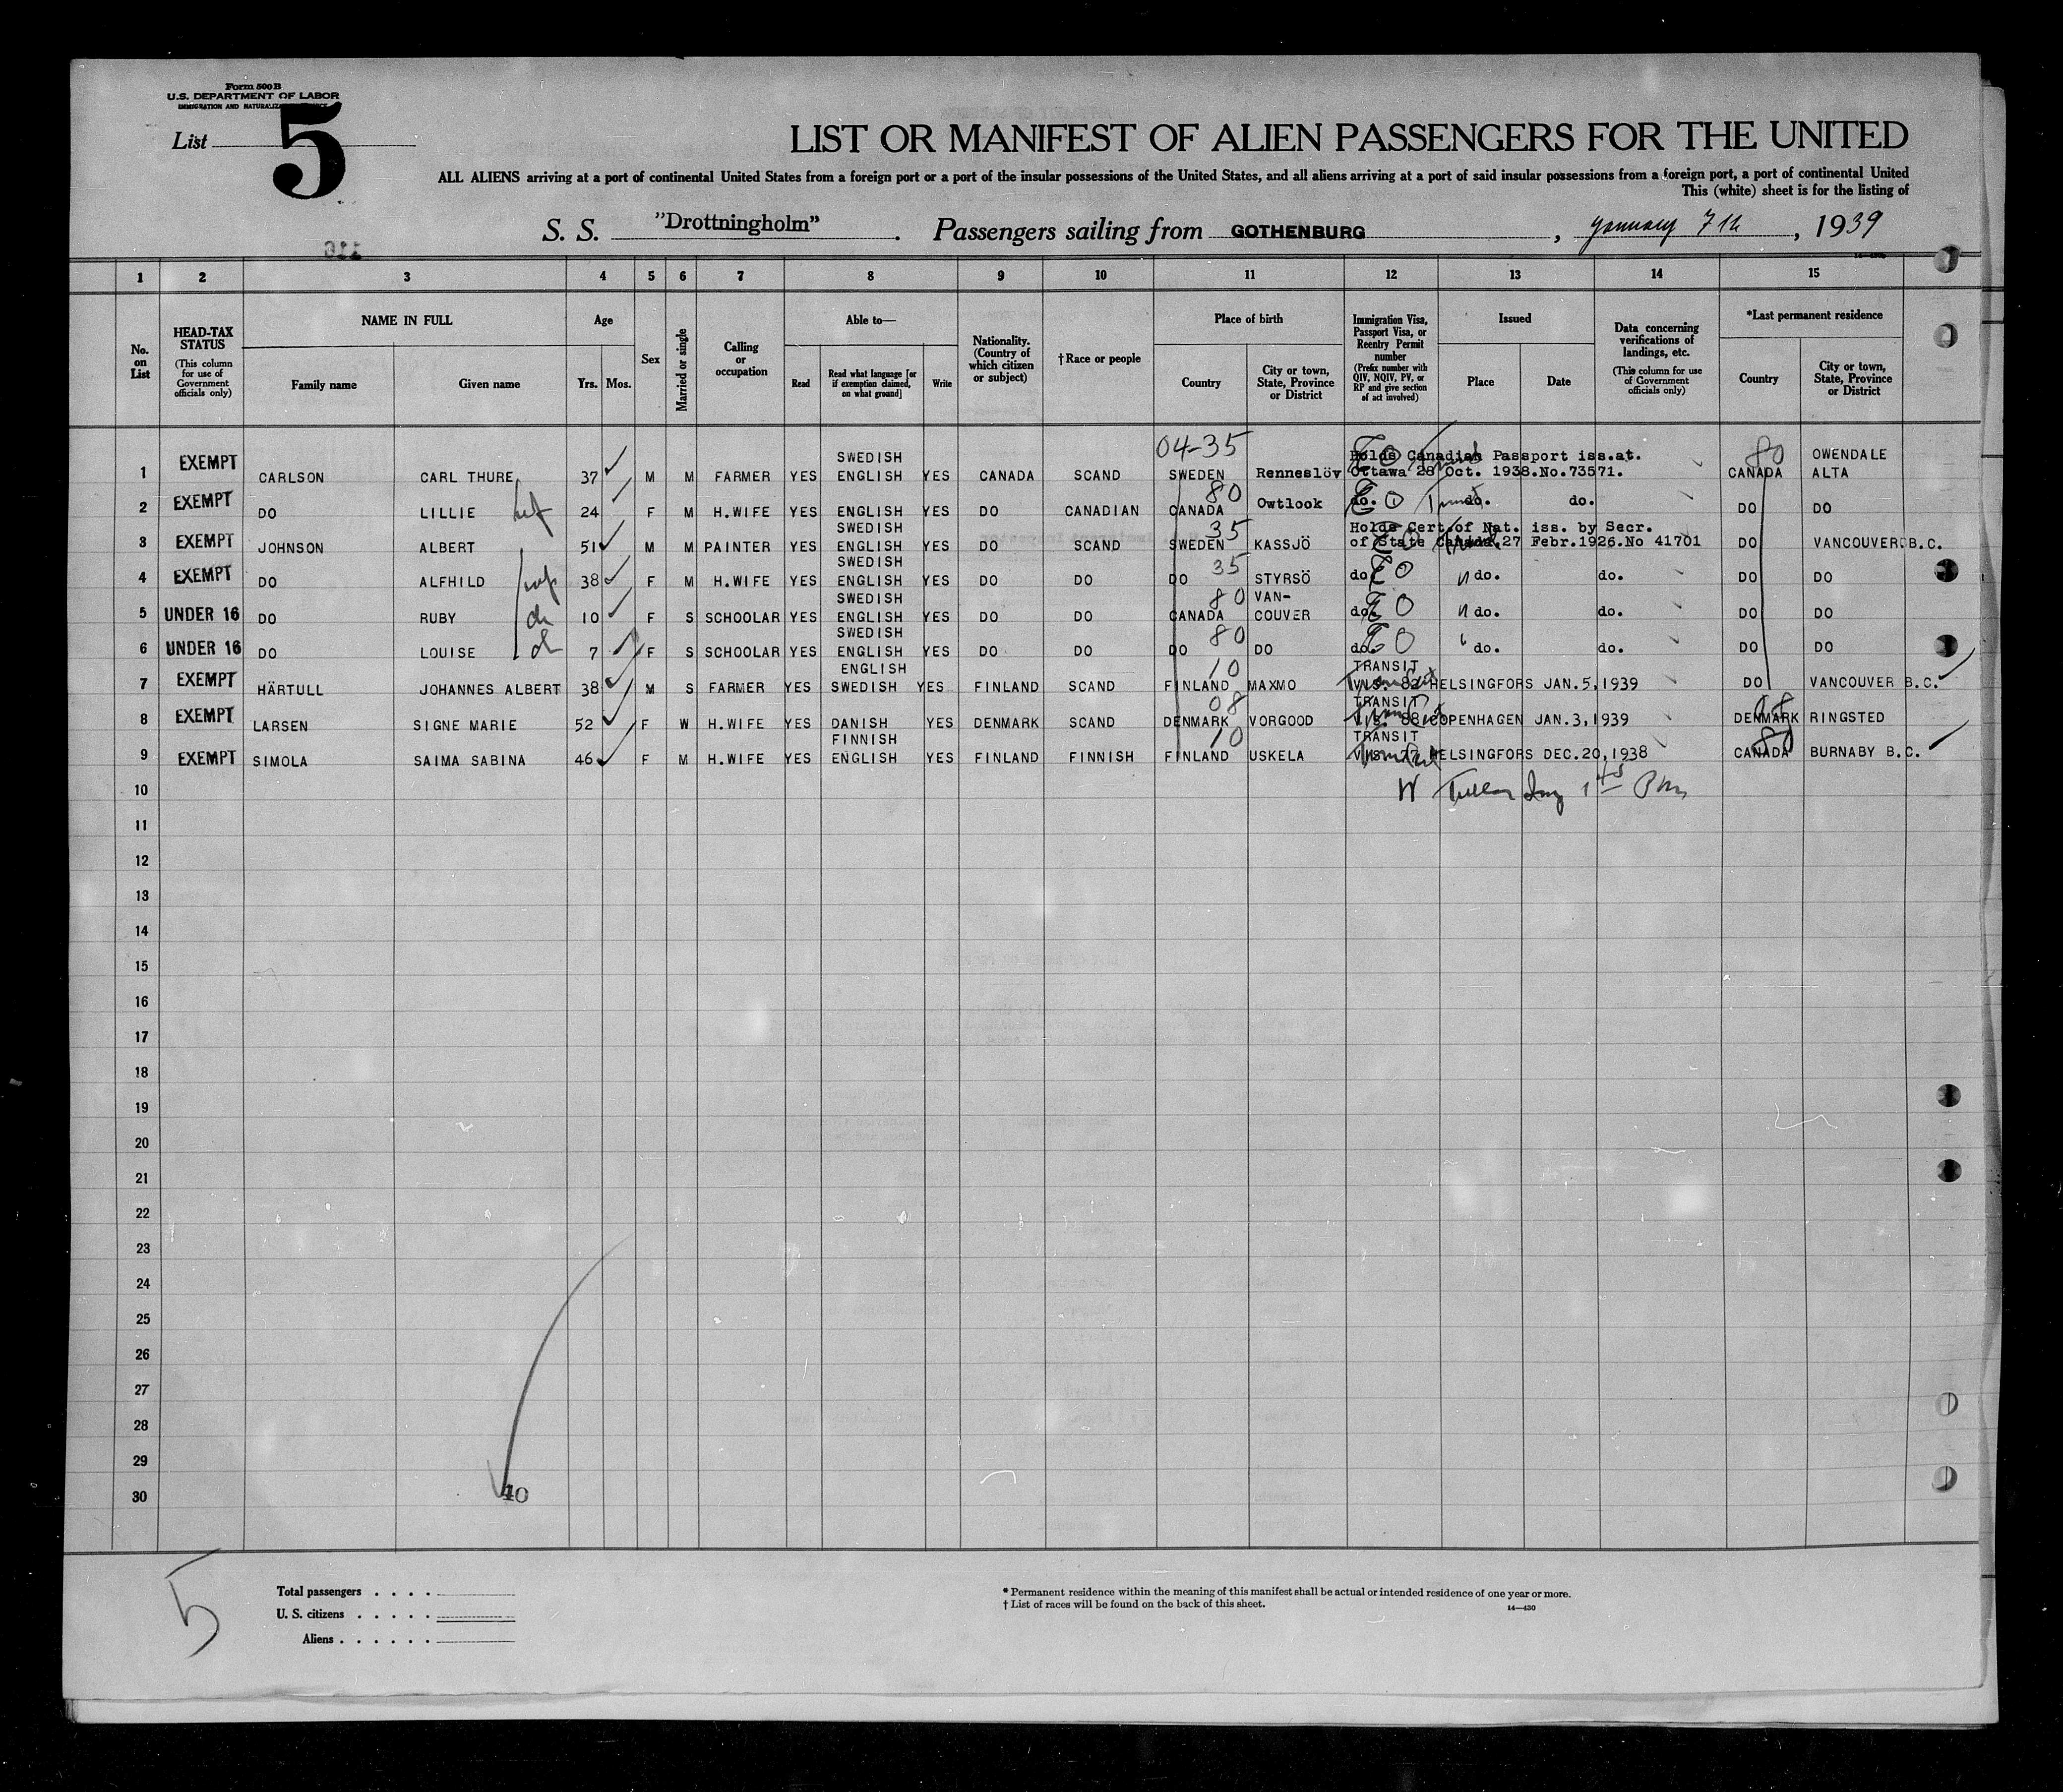 Form 500 B
U.S. DEPARTMENT OF LABOR
IMMIGRATION AND NATURALIZATION SERVICE
List 5
LIST OR MANIFEST OF ALIEN PASSENGERS FOR THE UNITED
ALL ALIENS arriving at a port of continental United States from a foreign port or a port of the insular possessions of the United States, and all aliens arriving at a port of said insular possessions from a foreign port, a port of continental United
This (white) sheet is for the listing of
S. S. "Drottningholm". Passengers sailing from GOTHENBURG, January 7th, 1939
1 2 3 4 5 6 7 8 9 10 11 12 13 14 15
No. on List
HEAD-TAX STATUS (This column for use of Government officials only)
NAME IN FULL Family name Given name
Age Yrs. Mos.
Sex
Married or single
Calling or occupation
Able to— Read Read what language [or if exemption claimed, on what ground] Write
Nationality. (Country of which citizen or subject)
†Race or people
Place of birth Country City or town, State, Province or District
Immigration Visa, Passport Visa, or Reentry Permit number (Prefix number with QIV, NQIV, PV, or RP and give section of act involved)
Issued Place Date
Data concerning verifications of landings, etc. (This column for use of Government officials only)
*Last permanent residence Country City or town, State, Province or District
04-35
1 EXEMPT CARLSON CARL THURE 37 M M FARMER YES SWEDISH ENGLISH YES CANADA SCAND SWEDEN Renneslöv Holds Canadian Passport iss.at. Ottawa 28 Oct. 1938.No.73571. 80 CANADA OWENDALE ALTA
2 EXEMPT DO LILLIE 24 F M H.WIFE YES ENGLISH YES DO CANADIAN 80 CANADA Owtlook do. do. do. DO DO
3 EXEMPT JOHNSON ALBERT 51 M M PAINTER YES SWEDISH ENGLISH YES DO SCAND 35 SWEDEN KASSJÖ Holds Cert.of Nat. iss. by Secr. of State Canada.27 Febr.1926.No 41701 DO VANCOUVER B.C.
4 EXEMPT DO ALFHILD 38 F M H.WIFE YES SWEDISH ENGLISH YES DO DO 35 DO STYRSÖ do. do. do. DO DO
5 UNDER 16 DO RUBY 10 F S SCHOOLAR YES SWEDISH ENGLISH YES DO DO 80 CANADA VAN-COUVER do. do. do. DO DO
6 UNDER 16 DO LOUISE 7 F S SCHOOLAR YES SWEDISH ENGLISH YES DO DO 80 DO DO do. do. do. DO DO
7 EXEMPT HÄRTULL JOHANNES ALBERT 38 M S FARMER YES ENGLISH SWEDISH YES FINLAND SCAND 10 FINLAND MAXMO TRANSIT VIS. 82 HELSINGFORS JAN.5,1939 DO VANCOUVER B.C.
8 EXEMPT LARSEN SIGNE MARIE 52 F W H.WIFE YES DANISH YES DENMARK SCAND 08 DENMARK VORGOOD TRANSIT VIS. COPENHAGEN JAN.3,1939 DENMARK RINGSTED
9 EXEMPT SIMOLA SAIMA SABINA 46 F M H.WIFE YES FINNISH ENGLISH YES FINLAND FINNISH 10 FINLAND USKELA TRANSIT VIS. 77 HELSINGFORS DEC.20,1938 80 CANADA BURNABY B.C.
10
11
12
13
14
15
16
17
18
19
20
21
22
23
24
25
26
27
28
29
30
40
5
Total passengers . . . .
U. S. citizens . . . . .
Aliens . . . . . .
* Permanent residence within the meaning of this manifest shall be actual or intended residence of one year or more.
† List of races will be found on the back of this sheet.
14—430